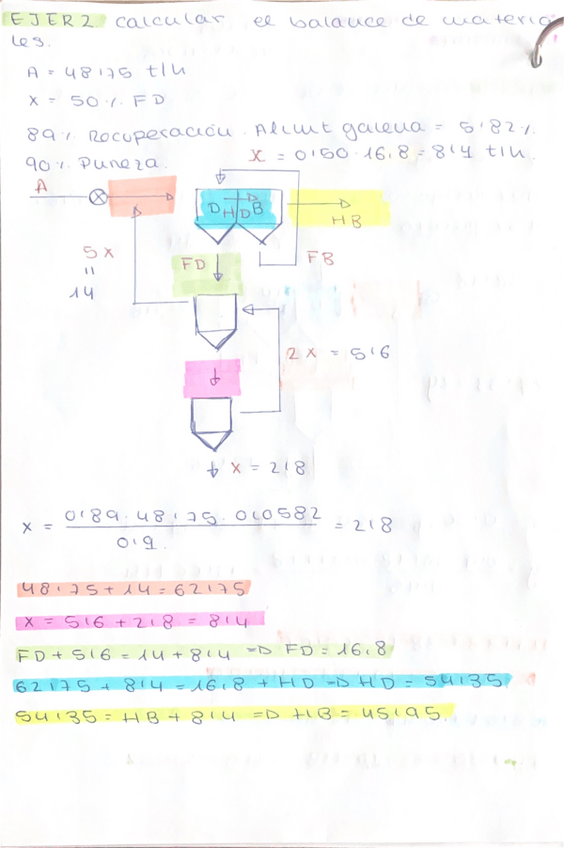 EJER2 calcular el balance de materia
les.
A = 48'75 t/h
X = 50% FD
89% Recuperación. Aliment galena = 5'82%
90% Pureza.
X = 0'50·16,8 = 8'4 t/h.
A
D H D B
HB
5x
FD
FB
"
14
2x = 5'6
x = 2'8
X = 0'89·48'75·0'0582 = 2'8
0'9.
48'75 + 14 = 62'75
X = 5'6 + 2'8 = 8'4
FD + 5'6 = 14 + 8'4 => FD = 16,8
62'75 + 8'4 = 16,8 + HD => HD = 54'35
54'35 = HB + 8'4 => HB = 45'95.